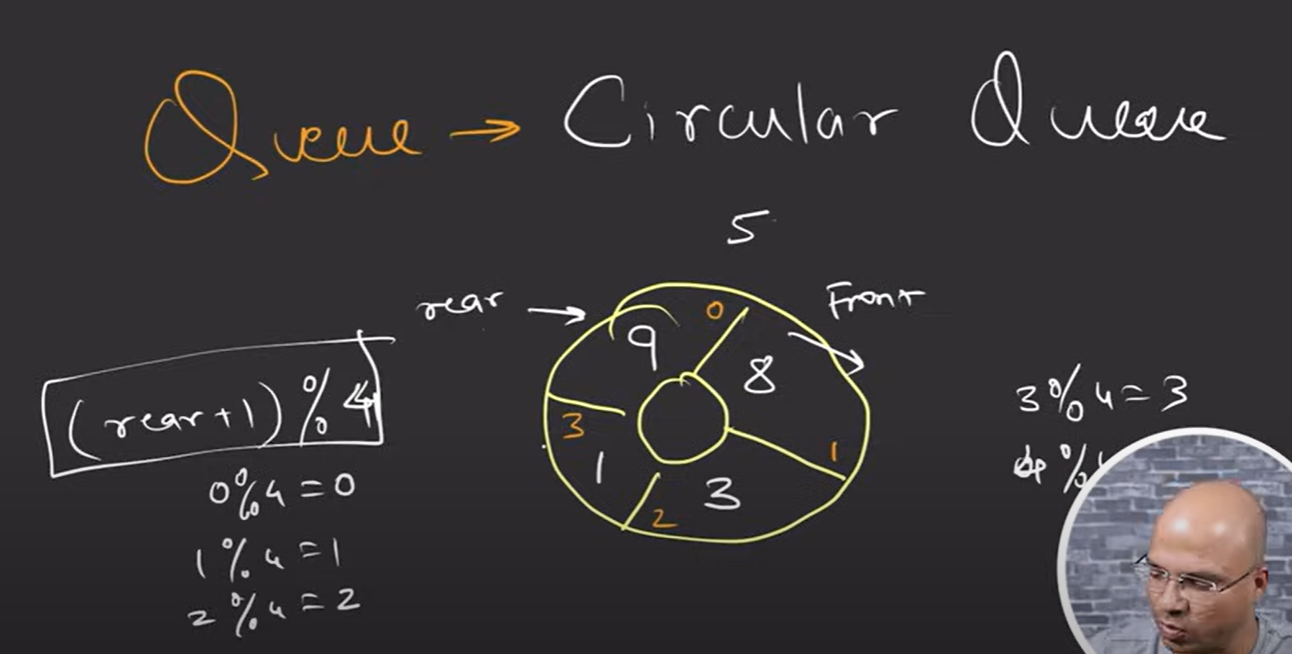 Queue → Circular Queue
5
rear →
Front
0
9
8
3
1
1
3
2
(rear+1) % 4
0 % 4 = 0
1 % 4 = 1
2 % 4 = 2
3 % 4 = 3